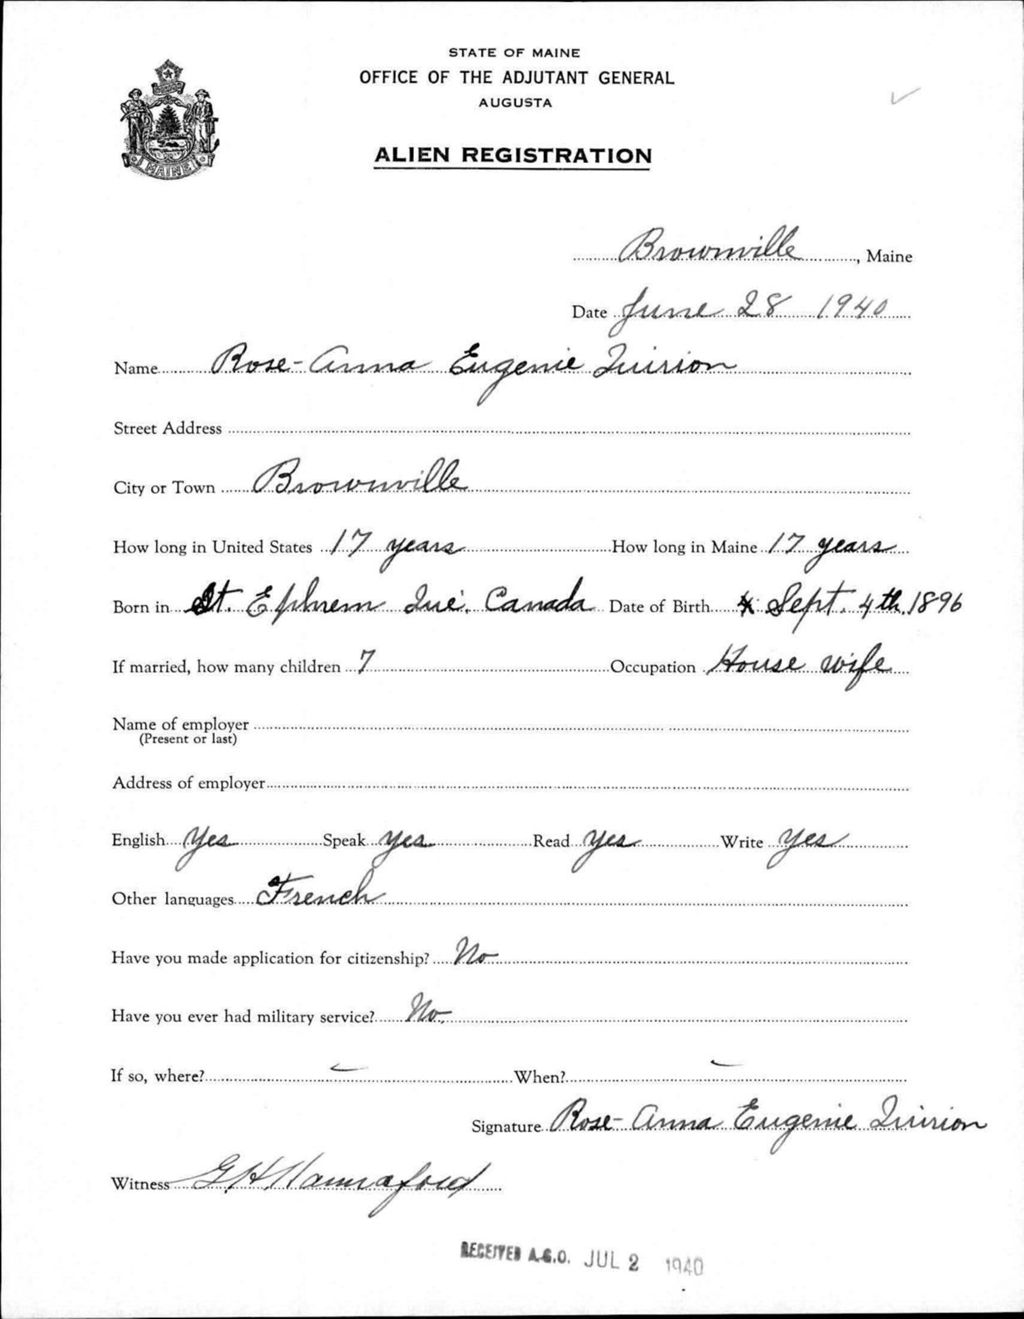 STATE OF MAINE
OFFICE OF THE ADJUTANT GENERAL
AUGUSTA
ALIEN REGISTRATION
MAINE
Brownville, Maine
Date June 28 1940
Name Rose-Anna Eugenie Quirion
Street Address
City or Town Brownville
How long in United States 17 years How long in Maine 17 years
Born in St. Ephrem Que. Canada Date of Birth Sept. 4th, 1896
If married, how many children 7 Occupation House wife
Name of employer
(Present or last)
Address of employer
English Yes Speak Yes Read Yes Write Yes
Other languages French
Have you made application for citizenship? No
Have you ever had military service? No.
If so, where? - When? -
Signature Rose-Anna Eugenie Quirion
Witness G.H. Hannaford
RECEIVED A.G.O. JUL 2 1940